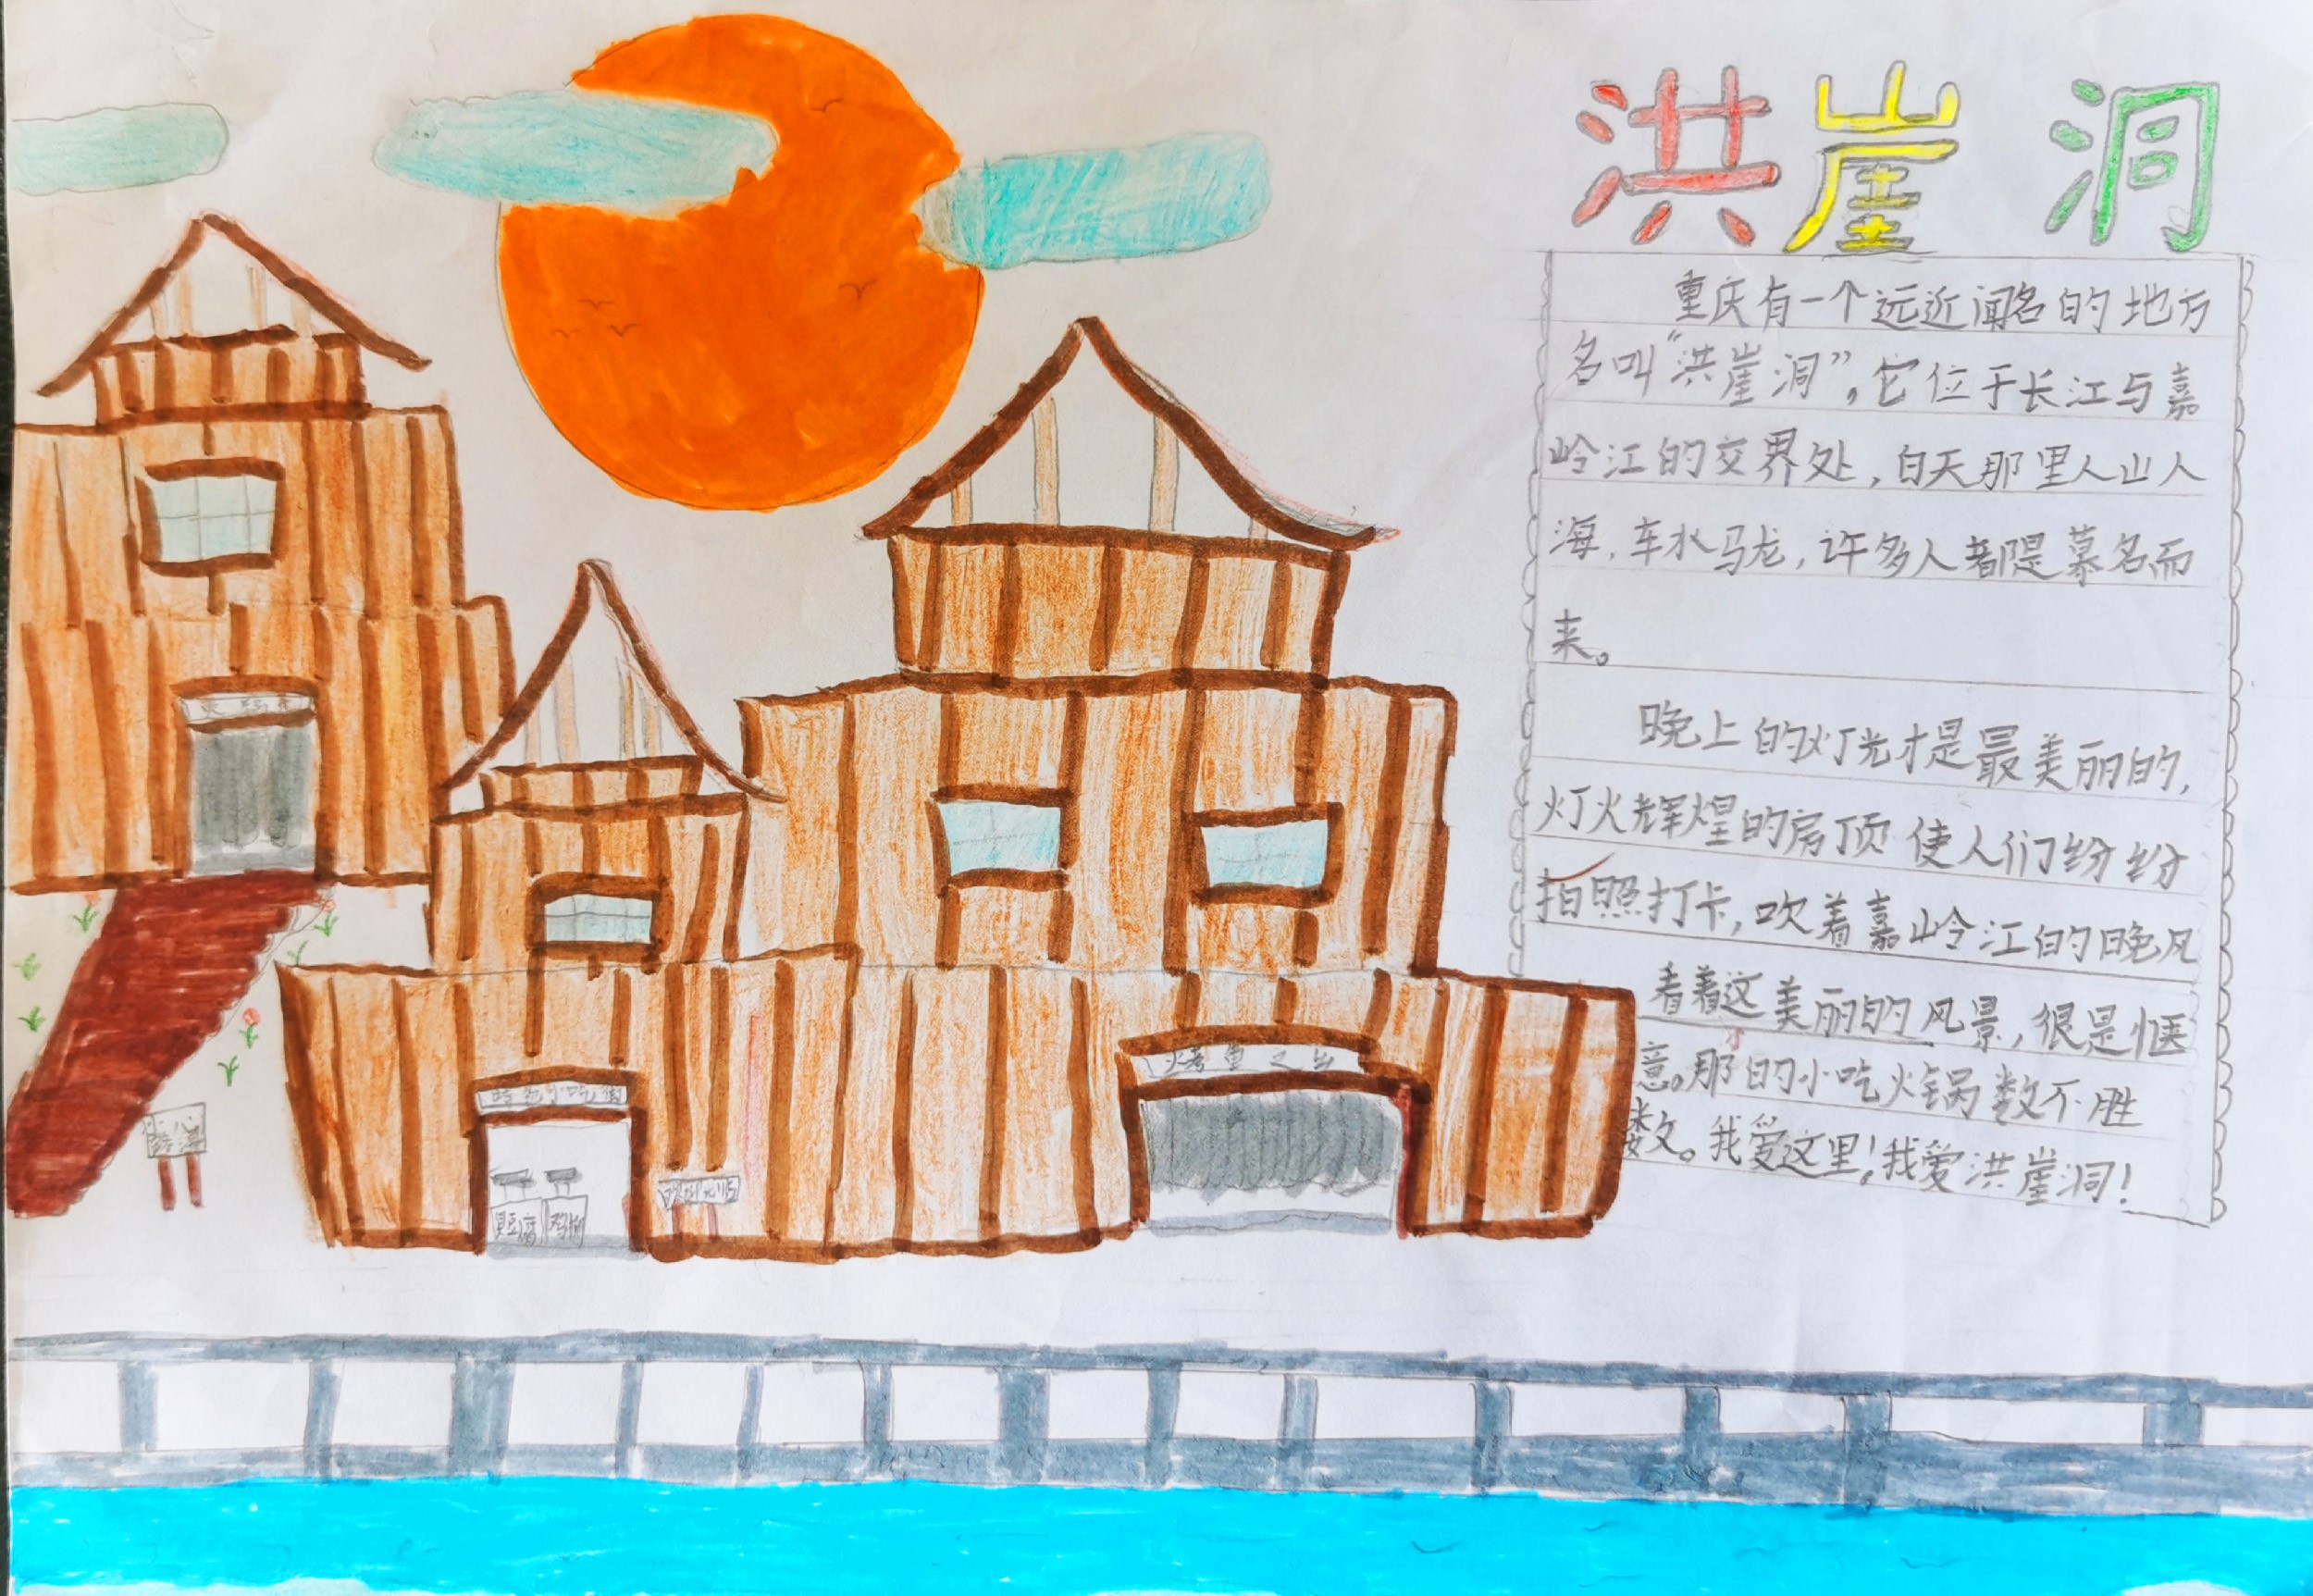 洪崖洞
重庆有一个远近闻名的地方
名叫“洪崖洞”,它位于长江与嘉
岭江的交界处,白天那里人山人
海,车水马龙,许多人都是慕名而
来。
晚上的灯光才是最美丽的,
灯火辉煌的房顶使人们纷纷
拍照打卡,吹着嘉岭江的晚风
看着这美丽的风景,很是惬
意。那的小吃火锅数不胜
数。我爱这里!我爱洪崖洞!
烤鱼之乡
特色小吃街
臭豆腐
小心